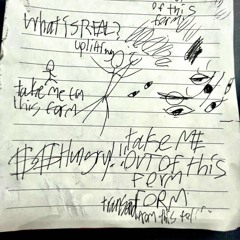 of this
form
What is REAL?
uplifting
take me from
this form
Hungry!!
take ME
OUT OF this
form
FORM
from this